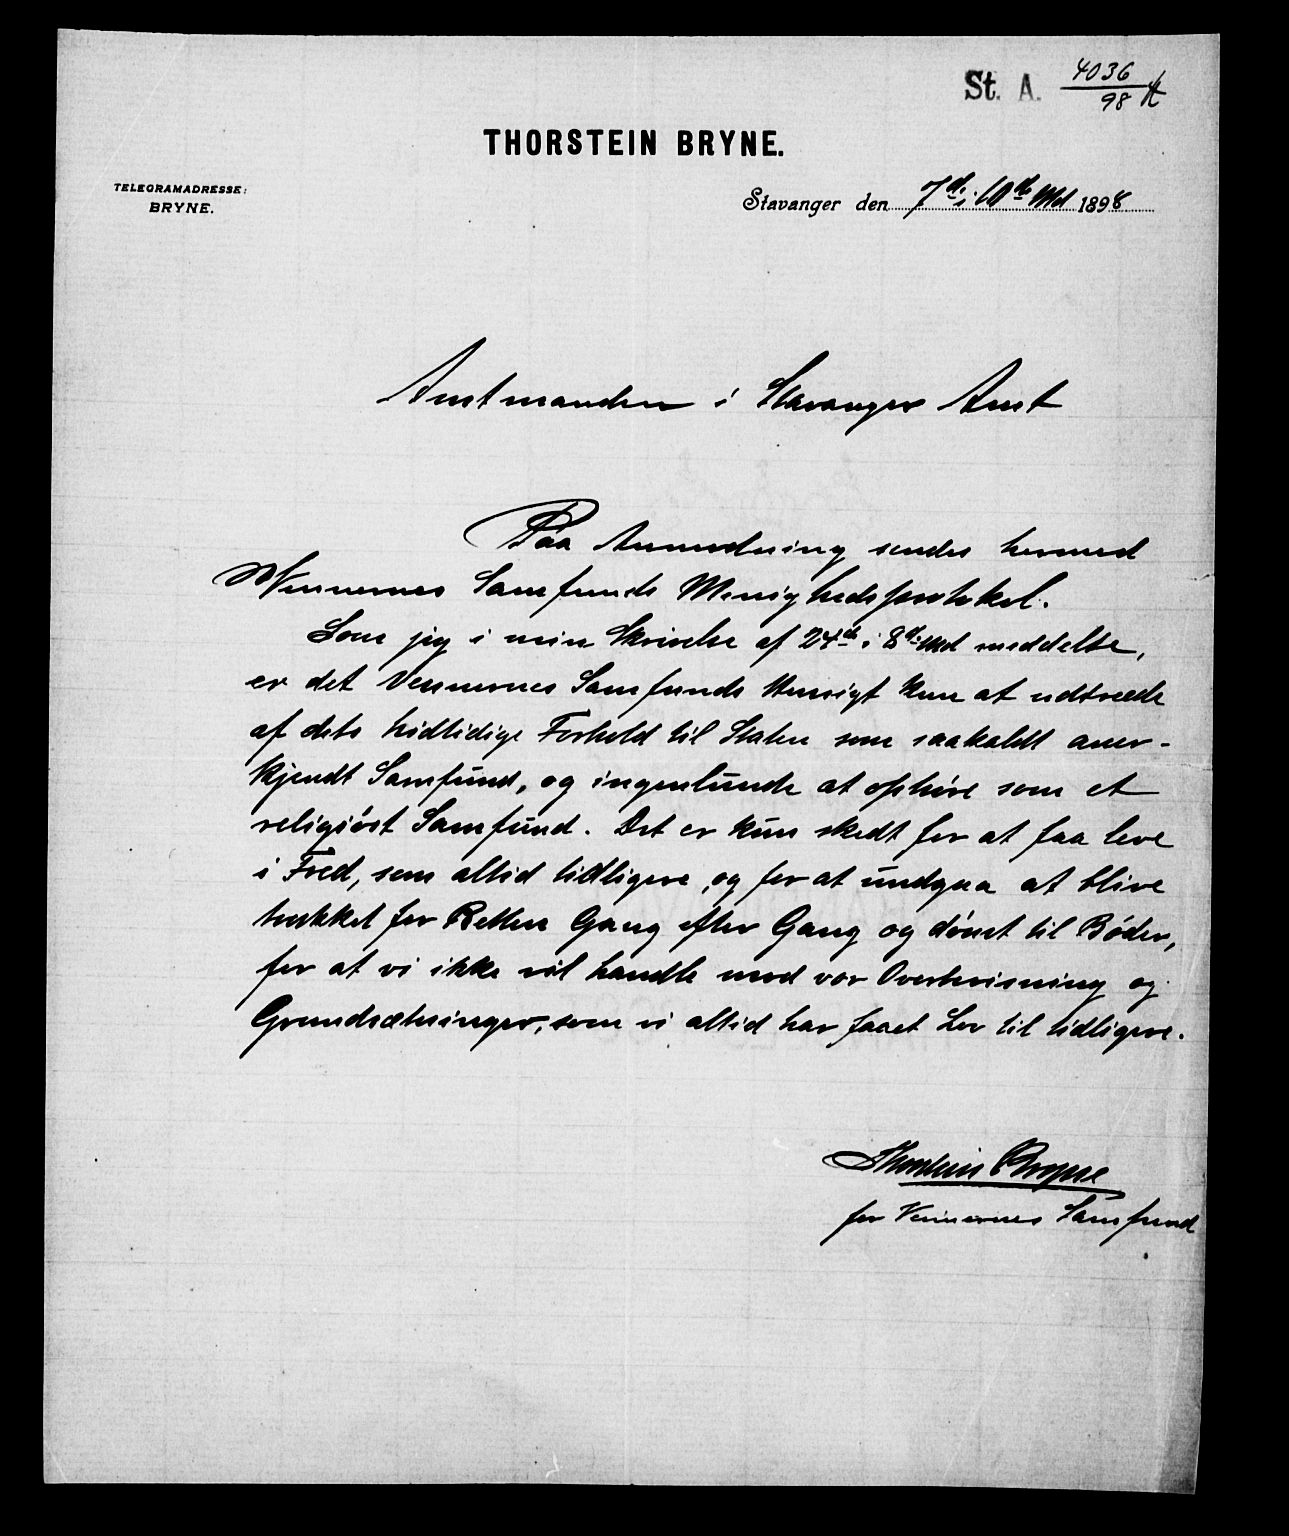 St. A. 4036
98
THORSTEIN BRYNE.
TELEGRAMADRESSE:
BRYNE.
Stavanger den 7de i 10de Md 1898
Amtmanden i Stavanger Amt
Paa Anmodning sendes hermed
Vennernes Samfunds Menighedsprotokol.
Som jeg i min Skrivelse af 24de i 8de Md meddelte,
er det Vennernes Samfunds Hensigt kun at udtræde
af dets hidtidige Forhold til Staten som saakaldt aner-
kjendt Samfund, og ingenlunde at ophøre som et
religiøst Samfund. Det er kun skedt for at faa leve
i Fred, som altid tidligere, og for at undgaa at blive
trukket for Retten Gang efter Gang og dømt til Bøder,
for at vi ikke vil handle mod vor Overbevisning og
Grundsætninger, som vi altid har faaet Lov til tidligere.
Thorstein Bryne
for Vennernes Samfund